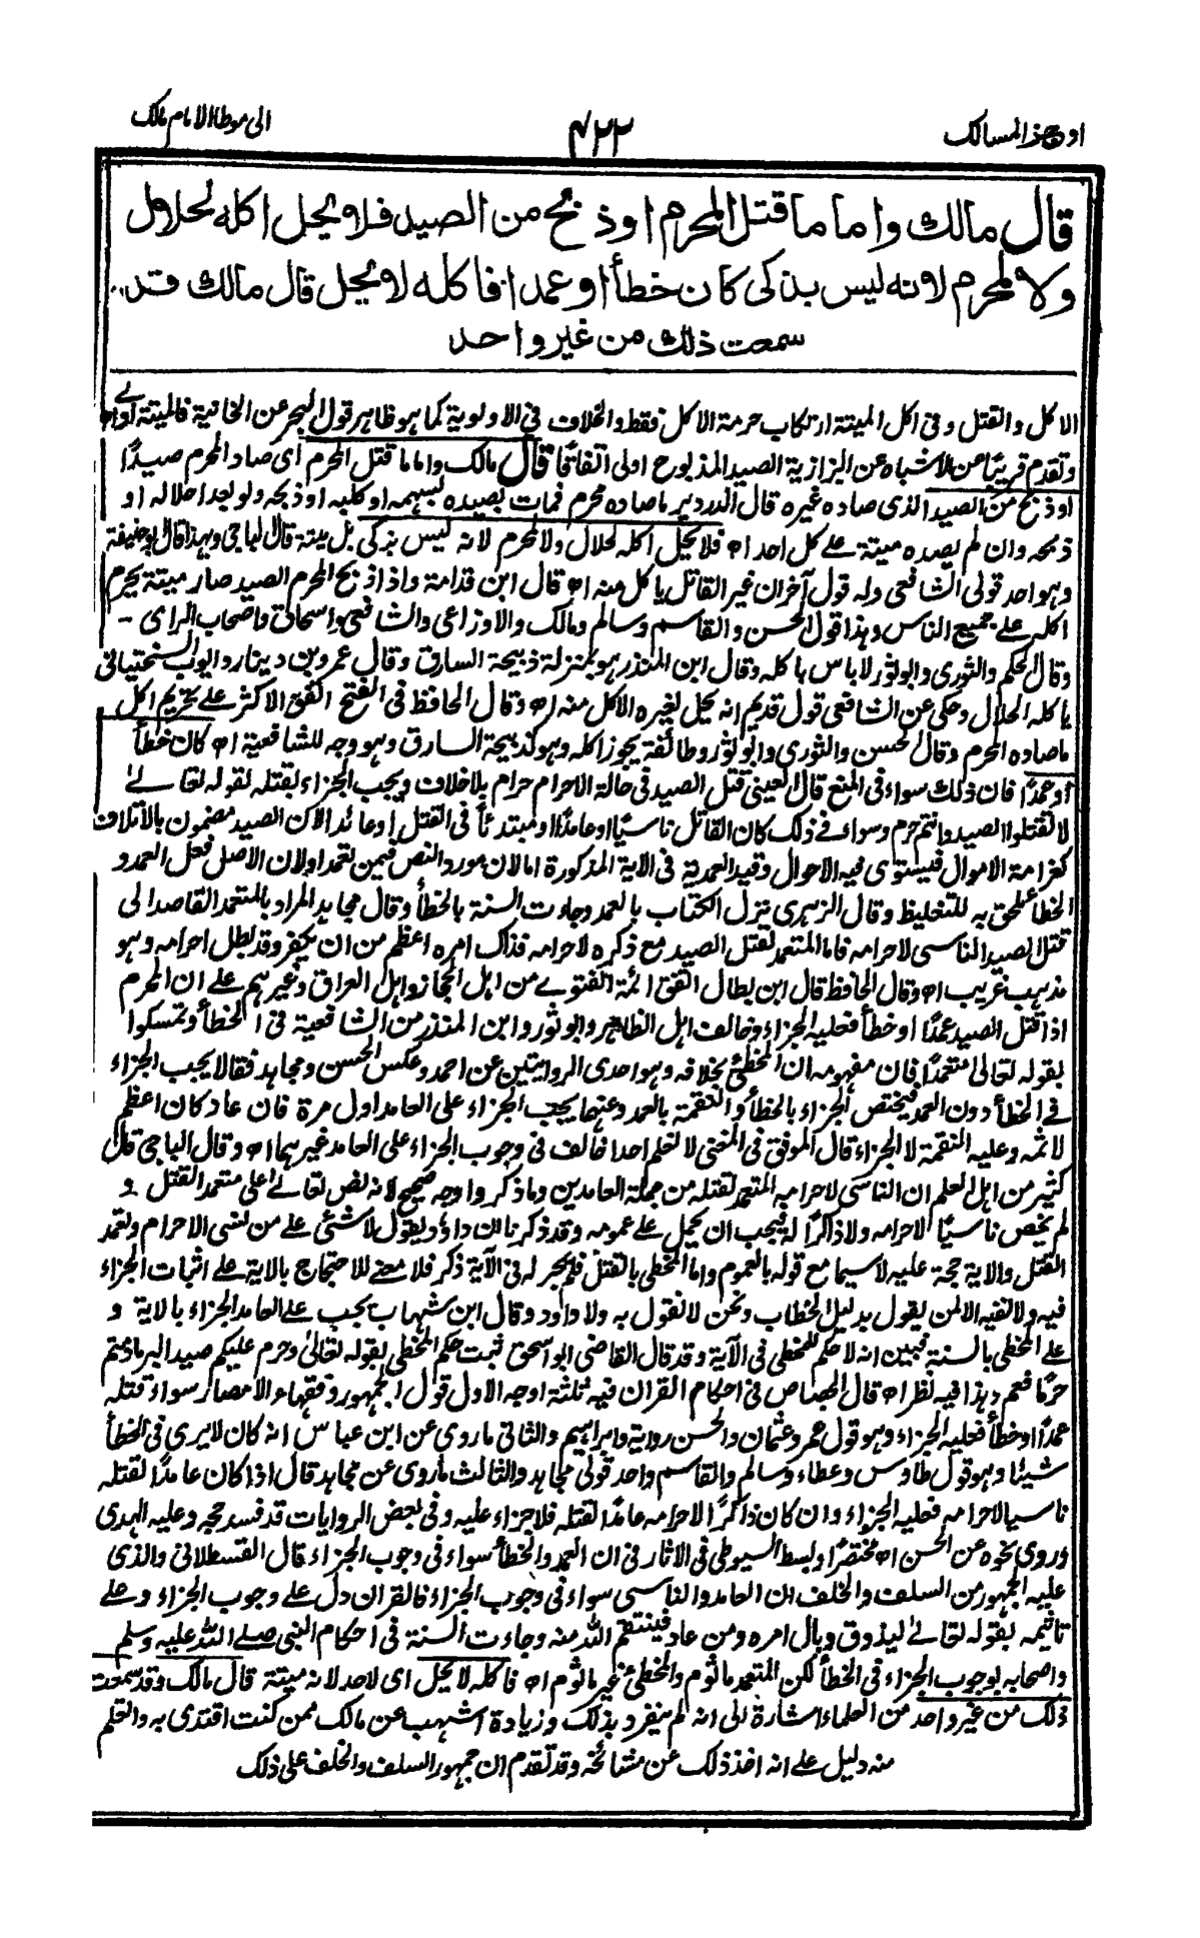 اوجز المسالك
٤٢٢
الى موطا الامام مالك
قال مالك واما ما قتل المحرم او ذبح من الصيد فلا يحل اكله لحلال
ولا لمحرم لانه ليس بذكى كان خطأ او عمدا فاكله لا يحل قال مالك قد
سمعت ذلك من غير واحد
الاكل والقتل وفى اكل الميتة ارتكاب حرمة الاكل فقط والخلاف فى الاولوية كما هو ظاهر قول البحر عن الخانية فالميتة اولى
وتقدم قريبًا عن الاشباه عن البزازية الصيد المذبوح اولى اتفاقًا قال مالك واما ما قتل المحرم اى صاد المحرم صيدًا
او ذبح من الصيد الذى صاده غيره قال الدردير ما صاده محرم فمات بصيده بسهمه او كلبه او ذبحه ولو بعد احلاله او
ذبحه وان لم يصده ميتة على كل احد اه فلا يحل اكله لحلال ولا لمحرم لانه ليس بذكى بل ميتة قال الباجى وبهذا قال ابو حنيفة
وهو احد قولى الشافعى وله قول آخر ان غير القاتل ياكل منه اه قال ابن قدامة واذا ذبح المحرم الصيد صار ميتة يحرم
اكله على جميع الناس وهذا قول الحسن والقاسم وسالم ومالك والاوزاعى والشافعى واسحاق واصحاب الراى -
وقال الحكم والثورى وابو ثور لا باس باكله وقال ابن المنذر هو بمنزلة ذبيحة السارق وقال عمرو بن دينار وايوب السختيانى
ياكله الحلال وحكى عن الشافعى قول قديم انه يحل لغيره الاكل منه اه وقال الحافظ فى الفتح اتفق الاكثر على تحريم اكل
ما صاده المحرم وقال الحسن والثورى وابو ثور وطائفة يجوز اكله وهو كذبيحة السارق وهو وجه للشافعية اه كان خطأ
او عمدًا فان ذلك سواء فى المنع قال العينى قتل الصيد فى حالة الاحرام حرام بلا خلاف ويجب الجزاء بقتله لقوله تعالى
لا تقتلوا الصيد وانتم حرم وسواء فى ذلك كان القاتل ناسيًا او عامدًا او مبتدئًا فى القتل او عائدا لان الصيد مضمون بالاتلاف
كغرامة الاموال فيستوى فيه الاحوال وقيد العمدية فى الاية المذكورة اما لان مورد النص فيمن تعمد او لان الاصل فعل العمد و
الخطأ ملحق به للتغليظ وقال الزهرى نزل الكتاب بالعمد وجاءت السنة بالخطأ وقال مجاهد المراد بالمتعمد القاصد الى
قتل الصيد الناسى لاحرامه فاما المتعمد لقتل الصيد مع ذكره لاحرامه فذاك امره اعظم من ان يكفر وقد بطل احرامه وهو
مذهب غريب اه وقال الحافظ قال ابن بطال اتفق ائمة الفتوى من اهل الحجاز واهل العراق وغيرهم على ان المحرم
اذا قتل الصيد عمدًا او خطأ فعليه الجزاء وخالف اهل الظاهر وابو ثور وابن المنذر من الشافعية فى الخطأ وتمسكوا
بقوله تعالى متعمدًا فان مفهومه ان المخطئ بخلافه وهو احدى الروايتين عن احمد وعكس الحسن ومجاهد فقالا يجب الجزاء
فى الخطأ دون العمد فيختص الجزاء بالخطأ والنقمة بالعمد وعنهما يجب الجزاء على العامد اول مرة فان عاد كان اعظم
لاثمه وعليه النقمة لا الجزاء قال الموفق فى المغنى لا نعلم احدا خالف فى وجوب الجزاء على العامد غيرهما اه وقال الباجى قال
كثير من اهل العلم ان الناسى لاحرامه المتعمد لقتله من جملة العامدين وما ذكروا وجه صحيح لانه نص تعالى على متعمد القتل و
لم يخص ناسيًا لاحرامه ولا ذاكرًا له فيجب ان يحمل على عمومه وقد ذكرنا ابن داؤد يقول لا شئ على من نسى الاحرام وتعمد
القتل والاية حجة عليه لا سيما مع قوله بالعموم واما المخطى بالقتل فلم يجر له فى الآية ذكر فلا معنى للاحتجاج بالاية على اثبات الجزاء
فيه ولا نفيه الا لمن يقول بدليل الخطاب ونحن لا نقول به ولا داود وقال ابن شهاب يجب على العامد الجزاء بالاية و
على المخطى بالسنة فبين انه لا حكم للمخطى فى الآية وقد قال القاضى ابو اسحق ثبت حكم المخطى بقوله تعالىٰ وحرم عليكم صيد البر ما دمتم
حرمًا فعم وهذا فيه نظر اه قال الجصاص فى احكام القران فيه ثلثة اوجه الاول قول الجمهور وفقهاء الامصار سواء قتله
عمدًا او خطأ فعليه الجزاء وهو قول عمر وعثمان والحسن رواية وابراهيم والثانى ما روى عن ابن عباس انه كان لا يرى فى الخطأ
شيئا وهو قول طاوس وعطاء وسالم والقاسم واحد قولى مجاهد والثالث ما روى عن مجاهد قال اذا كان عامدًا لقتله
ناسيا لاحرامه فعليه الجزاء وان كان ذاكرًا لاحرامه عامدًا لقتله فلا جزاء عليه وفى بعض الروايات قد فسد حجه وعليه الهدى
وروى نحوه عن الحسن اه مختصرًا وبسط السيوطى فى الاثار فى ان العمد والخطأ سواء فى وجوب الجزاء قال القسطلانى والذى
عليه الجمهور من السلف والخلف ان العامد والناسى سواء فى وجوب الجزاء فالقران دل على وجوب الجزاء وعلى
تاثيمه بقوله تعالى ليذوق وبال امره ومن عاد فينتقم الله منه وجاءت السنة فى احكام النبى صلى الله عليه وسلم
واصحابه بوجوب الجزاء فى الخطأ لكن المتعمد ماثوم والمخطئ غير ماثوم اه فاكله لا يحل اى لاحد لانه ميتة قال مالك وقد سمعت
ذلك من غير واحد من العلماء اشارة الى انه لم ينفرد بذلك وزيادة اشهب عن مالك ممن كنت اقتدى به واتعلم
منه دليل على انه اخذ ذلك عن مشائخه وقد تقدم ان جمهور السلف والخلف على ذلك